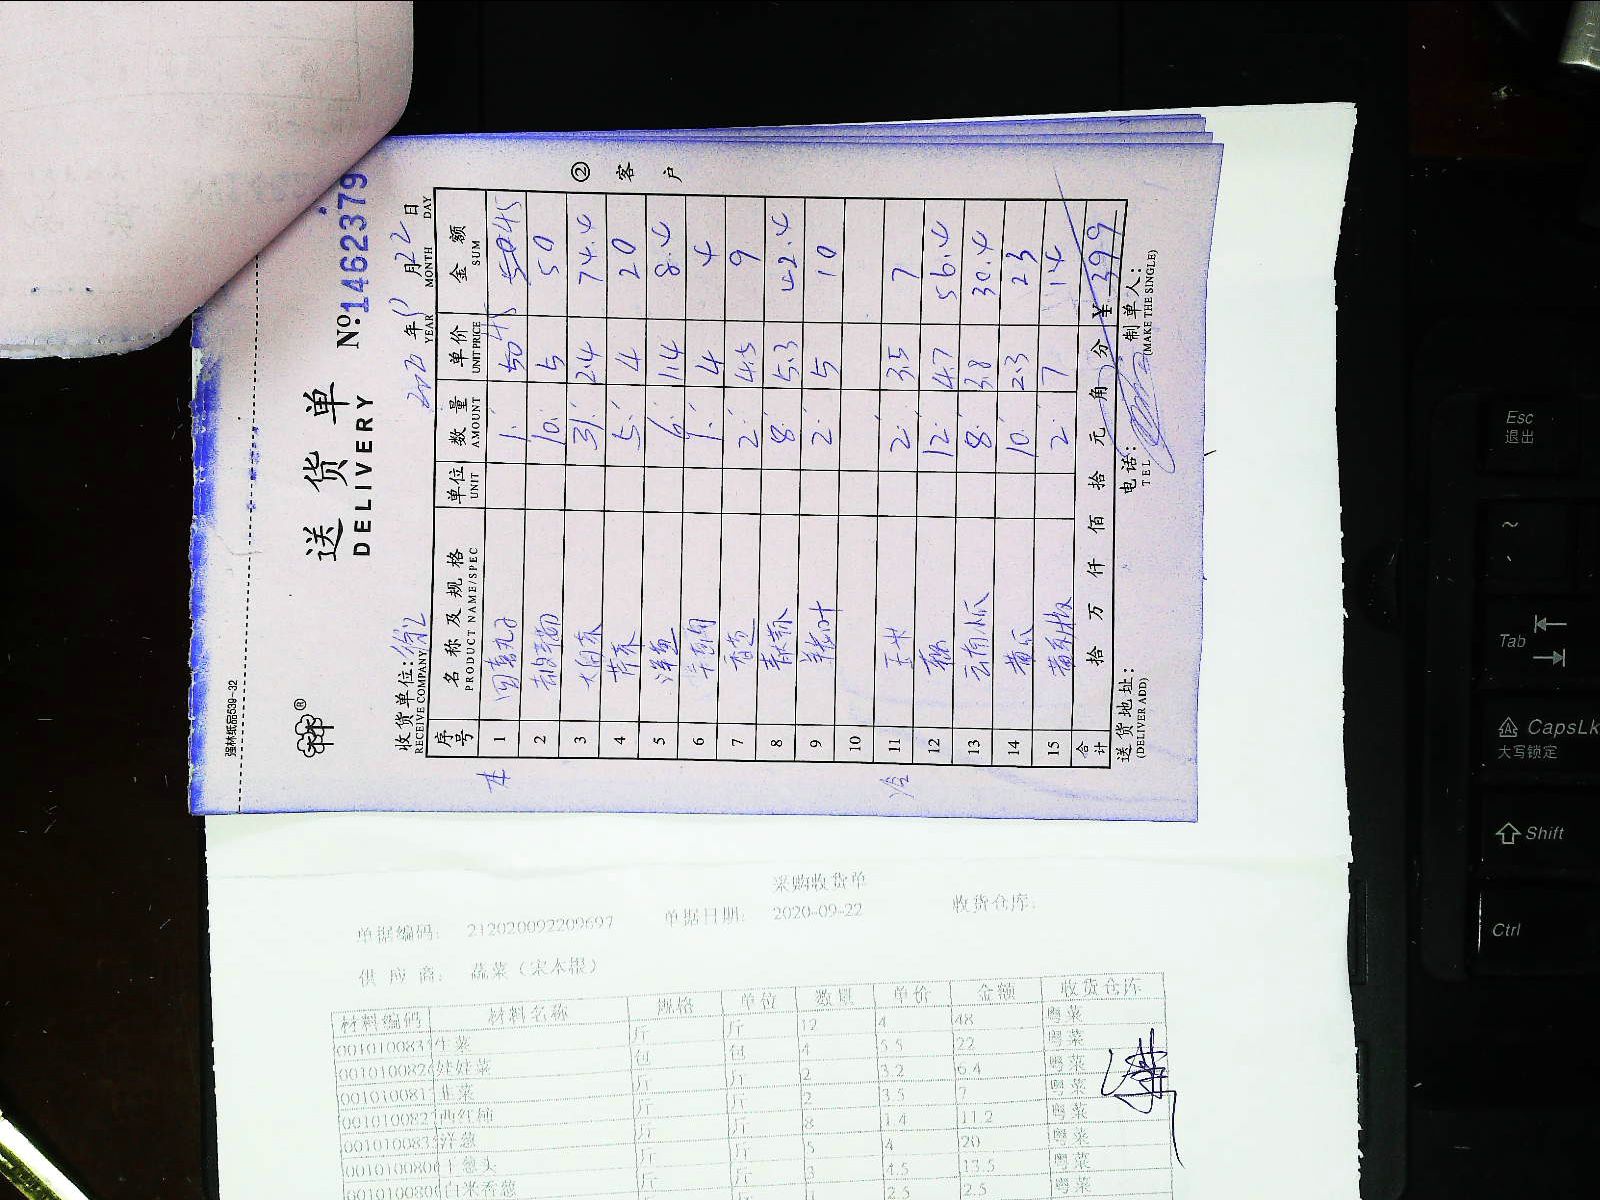 强林纸品539-32
®
送货单
DELIVERY
№:1462379
收货单位:
RECEIVE COMPANY
2020 年 9 月 22 日
YEAR MONTH DAY
序号 名称及规格 单位 数量 单价 金额
PRODUCT NAME/SPEC UNIT AMOUNT UNIT PRICE SUM
1 1 45 45
2 10 5 50
3 31 2.4 74.4
4 芹菜 5 4 20
5 洋葱 6 1.4 8.4
6 1 4 4
7 香葱 2 4.5 9
8 8 5.3 42.4
9 2 5 10
10
11 2 3.5 7
12 12 4.7 56.4
13 8 3.8 30.4
14 黄瓜 10 2.3 23
15 2 7 14
合计 拾 万 仟 佰 拾 元 角 分 ¥ 399
送货地址: 电话: 制单人:
(DELIVER ADD) TEL (MAKE THE SINGLE)
② 客户
采购收货单
单据编码: 212020092209697 单据日期: 2020-09-22 收货仓库:
供应商: 蔬菜(宋本银)
材料编码 材料名称 规格 单位 数量 单价 金额 收货仓库
001010083 生菜 斤 斤 12 4 48 粤菜
001010082 娃娃菜 包 包 4 5.5 22 粤菜
001010081 韭菜 斤 斤 2 3.2 6.4 粤菜
001010082 西红柿 斤 斤 2 3.5 7 粤菜
001010083 洋葱 斤 斤 8 1.4 11.2 粤菜
001010080 干葱头 斤 斤 5 4 20 粤菜
001010080 白米香葱 斤 斤 3 4.5 13.5 粤菜
2.5 2.5 粤菜
Esc
退出
~
Tab
CapsLk
大写锁定
Shift
Ctrl